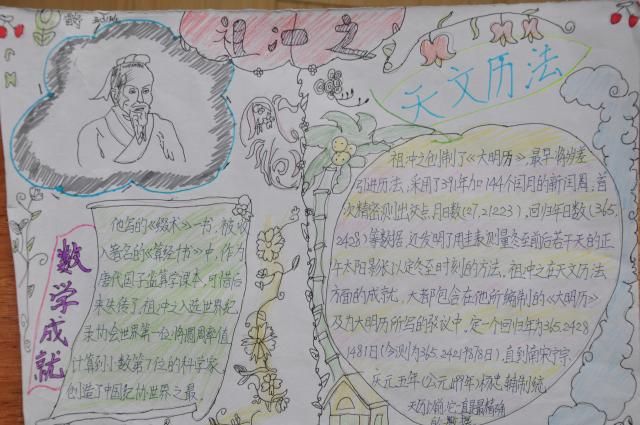 祖冲之
天文历法
数学成就
他写的《缀术》一书,被收
入著名的《算经十书》中,作为
唐代国子监算学课本,可惜后
来失传了。祖冲之入选世界纪
录协会世界第一位将圆周率值
计算到小数第7位的科学家,
创造了中国纪协世界之最。
祖冲之创制了《大明历》,最早将岁差
引进历法,采用了391年加144个闰月的新闰周,首
次精密测出交点月日数(27.21223),回归年日数(365.
2428)等数据,还发明了用圭表测量冬至前后若干天的正
午太阳影长以定冬至时刻的方法。祖冲之在天文历法
方面的成就,大都包含在他所编制的《大明历》
及为大明历所写的驳议中。定一个回归年为365.2428
1481日(今测为365.24219878日),直到南宋宁宗
庆元五年(公元1199年)杨忠辅制统
天历以前,它一直是最精确
的数据